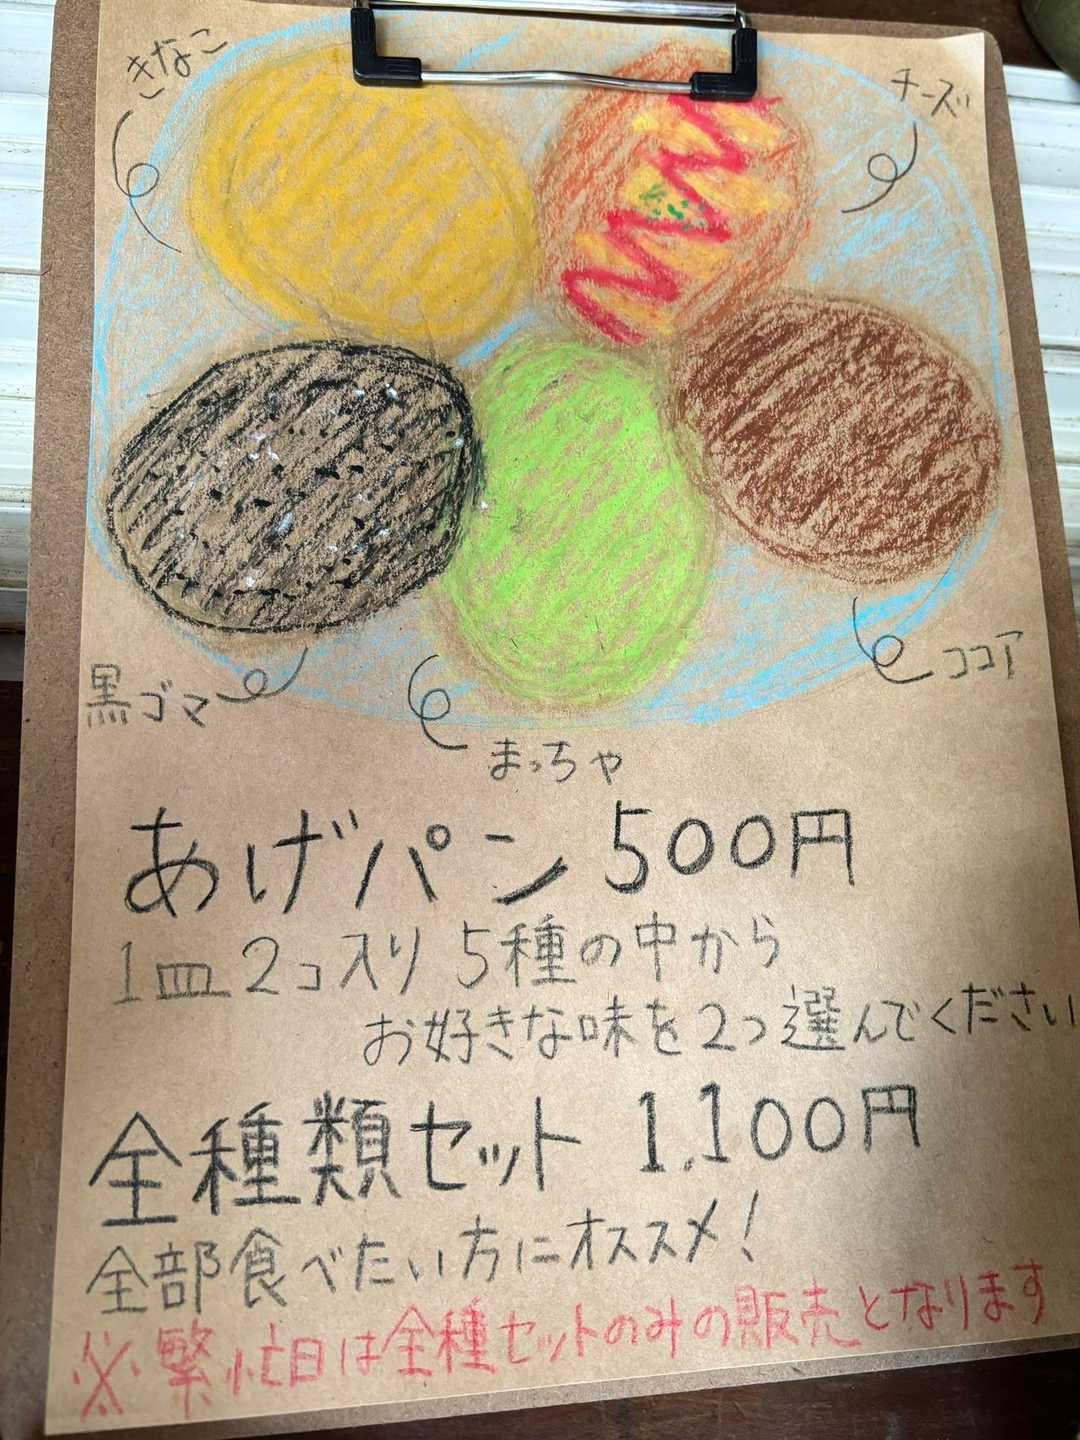 きなこ
チーズ
黒ゴマ
ココア
まっちゃ
あげパン 500円
1皿 2コ入り 5種の中から
お好きな味を2つ選んでください
全種類セット 1,100円
全部食べたい方にオススメ!
※繁忙日は全種セットのみの販売となります